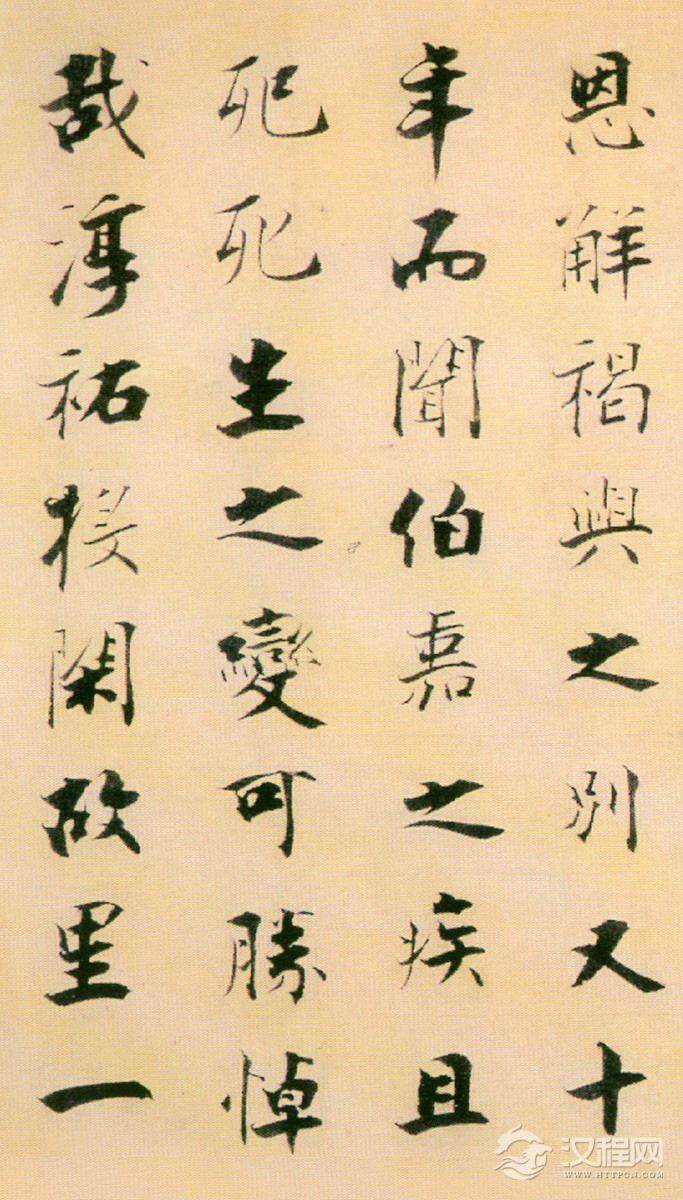 恩解褐與之別又十
年而聞伯嘉之疾且
死死生之變可勝悼
哉淳祐投閑故里一
汉程网
WWW.HTTPCN.COM